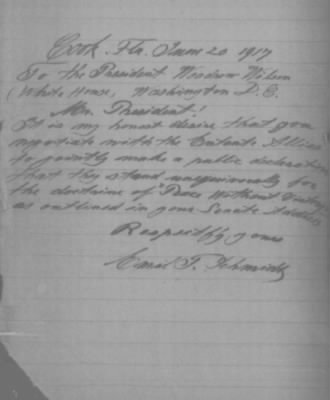 Cook. Fla. June 20 1917
To the President Woodrow Wilson
White House, Washington D.C.
Mr. President!
It is my honest desire that you
negotiate with the Entente Allies
to jointly make a public declaration
that they stand unequivocally for
the doctrine of "Peace Without Victory"
as outlined in your Senate Address
Respectf'y yours
Emil T. Schmidt